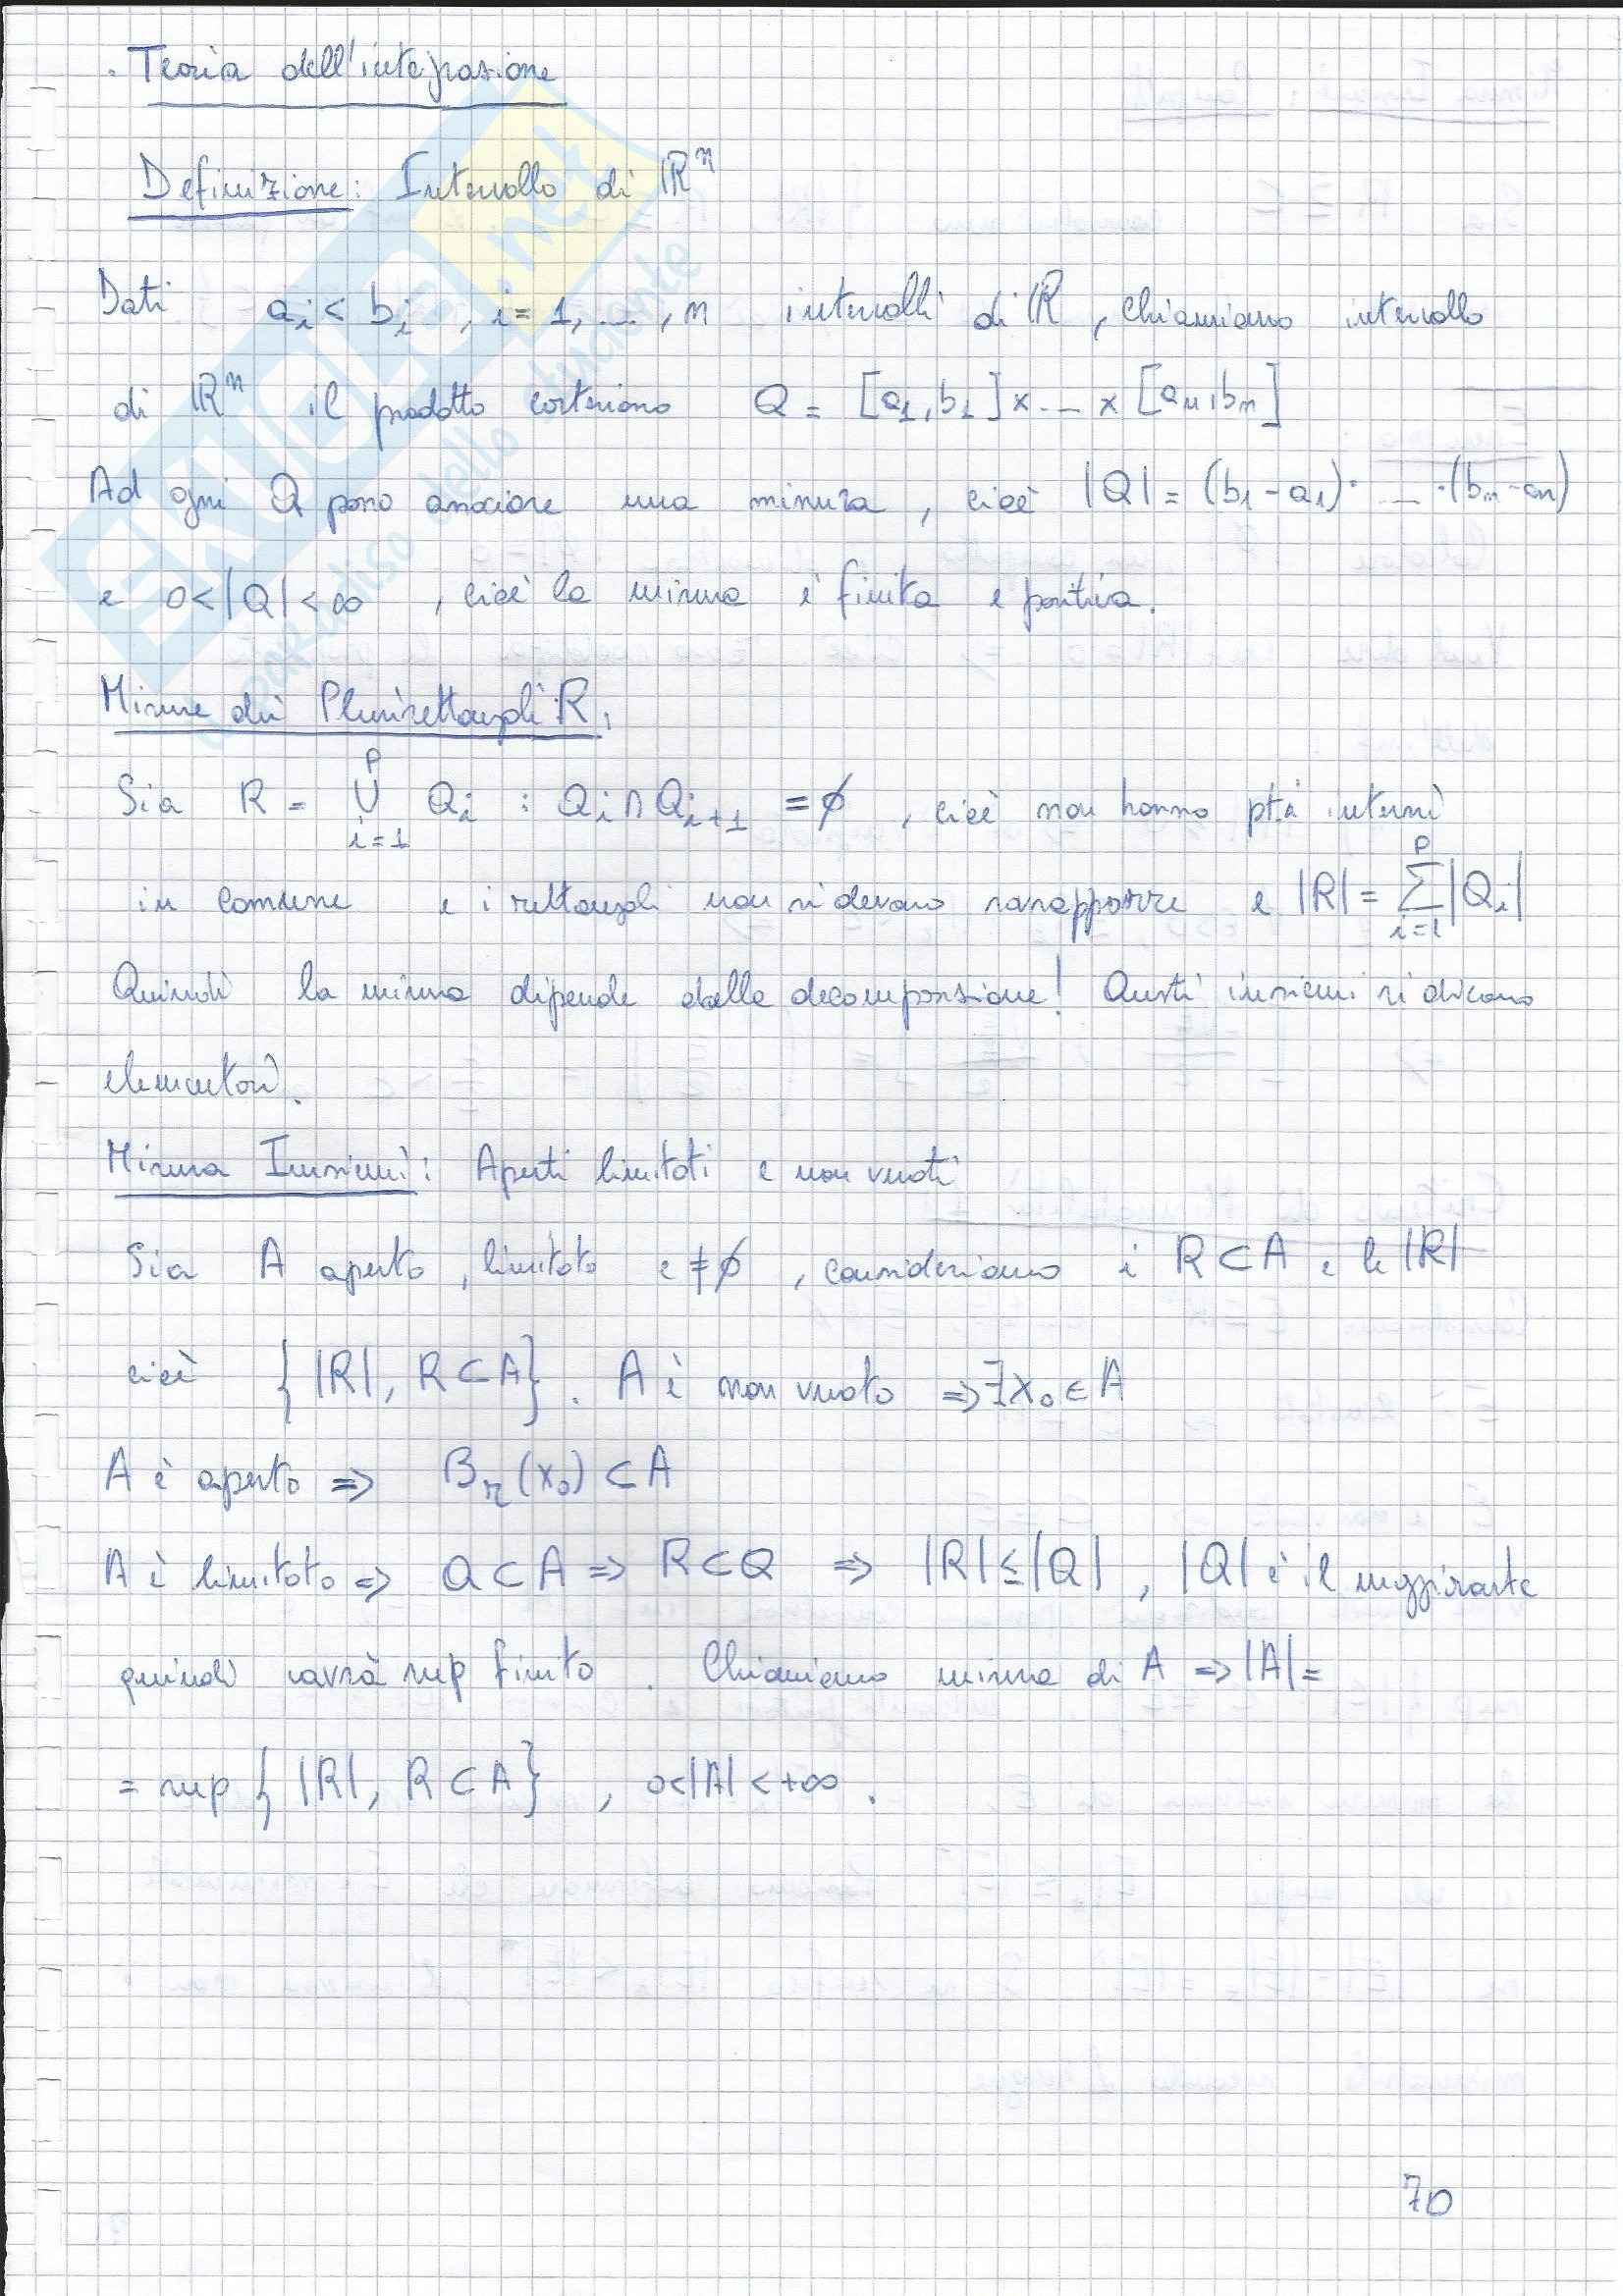 . Teoria dell'integrazione
Definizione: Intervallo di ℝⁿ
Dati aᵢ < bᵢ , i = 1, ... , n intervalli di ℝ , chiamiamo intervallo
di ℝⁿ il prodotto cartesiano Q = [a₁, b₁] x ... x [aₙ, bₙ]
Ad ogni Q posso associare una misura , cioè |Q| = (b₁ - a₁) · ... · (bₙ - aₙ)
e 0 < |Q| < ∞ , cioè la misura è finita e positiva.
Misure dei Plurirettangoli R.
Sia R = ⋃ᵢ₌₁ᵖ Qᵢ : Qᵢ ∩ Qᵢ₊₁ = ∅ , cioè non hanno pti interni
in comune e i rettangoli non si devono sovrapporre e |R| = ∑ᵢ₌₁ᵖ |Qᵢ|
Quindi la misura dipende dalla decomposizione! Questi insiemi si dicono
elementari.
Misura Insiemi: Aperti limitati e non vuoti
Sia A aperto , limitato e ≠ ∅ , consideriamo i R ⊂ A e le |R|
cioè { |R| , R ⊂ A } . A è non vuoto ⇒ ∃ x₀ ∈ A
A è aperto ⇒ Bᵣ(x₀) ⊂ A
A è limitato ⇒ Q ⊂ A ⇒ R ⊂ Q ⇒ |R| ≤ |Q| , |Q| è il
quindi avrà sup finito . Chiamiamo misura di A ⇒ |A| =
= sup { |R| , R ⊂ A } , 0 < |A| < +∞ .
70
SKUOLA.net
il paradiso dello studente